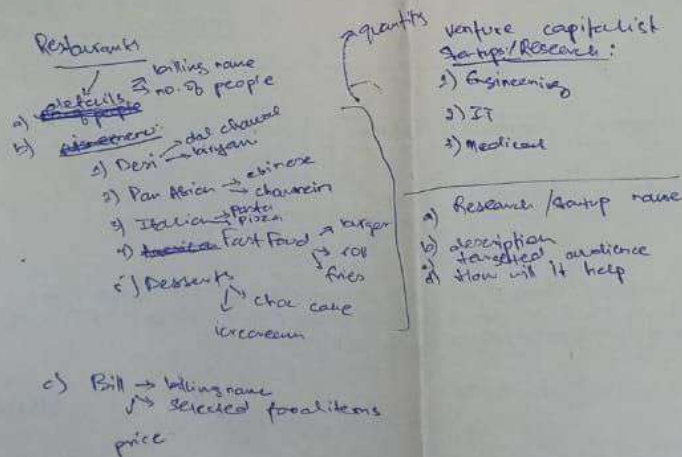 Restaurants
a) details → billing name
→ no. of people
b)
1) Desi → dal chawal
→ biryani
2) Pan Asian → chinese
→ chaumein
3) Italian → pasta
→ pizza
4) Fast Food → burger
→ fries
5) Desserts
→ choc cake
icecream
c) Bill → billing name
→ selected food items
price
quantity
venture capitalist
Startups/Research :
1) Engineering
2) IT
3) Medical
a) Research / startup name
b) description
targeted audience
d) How will it help